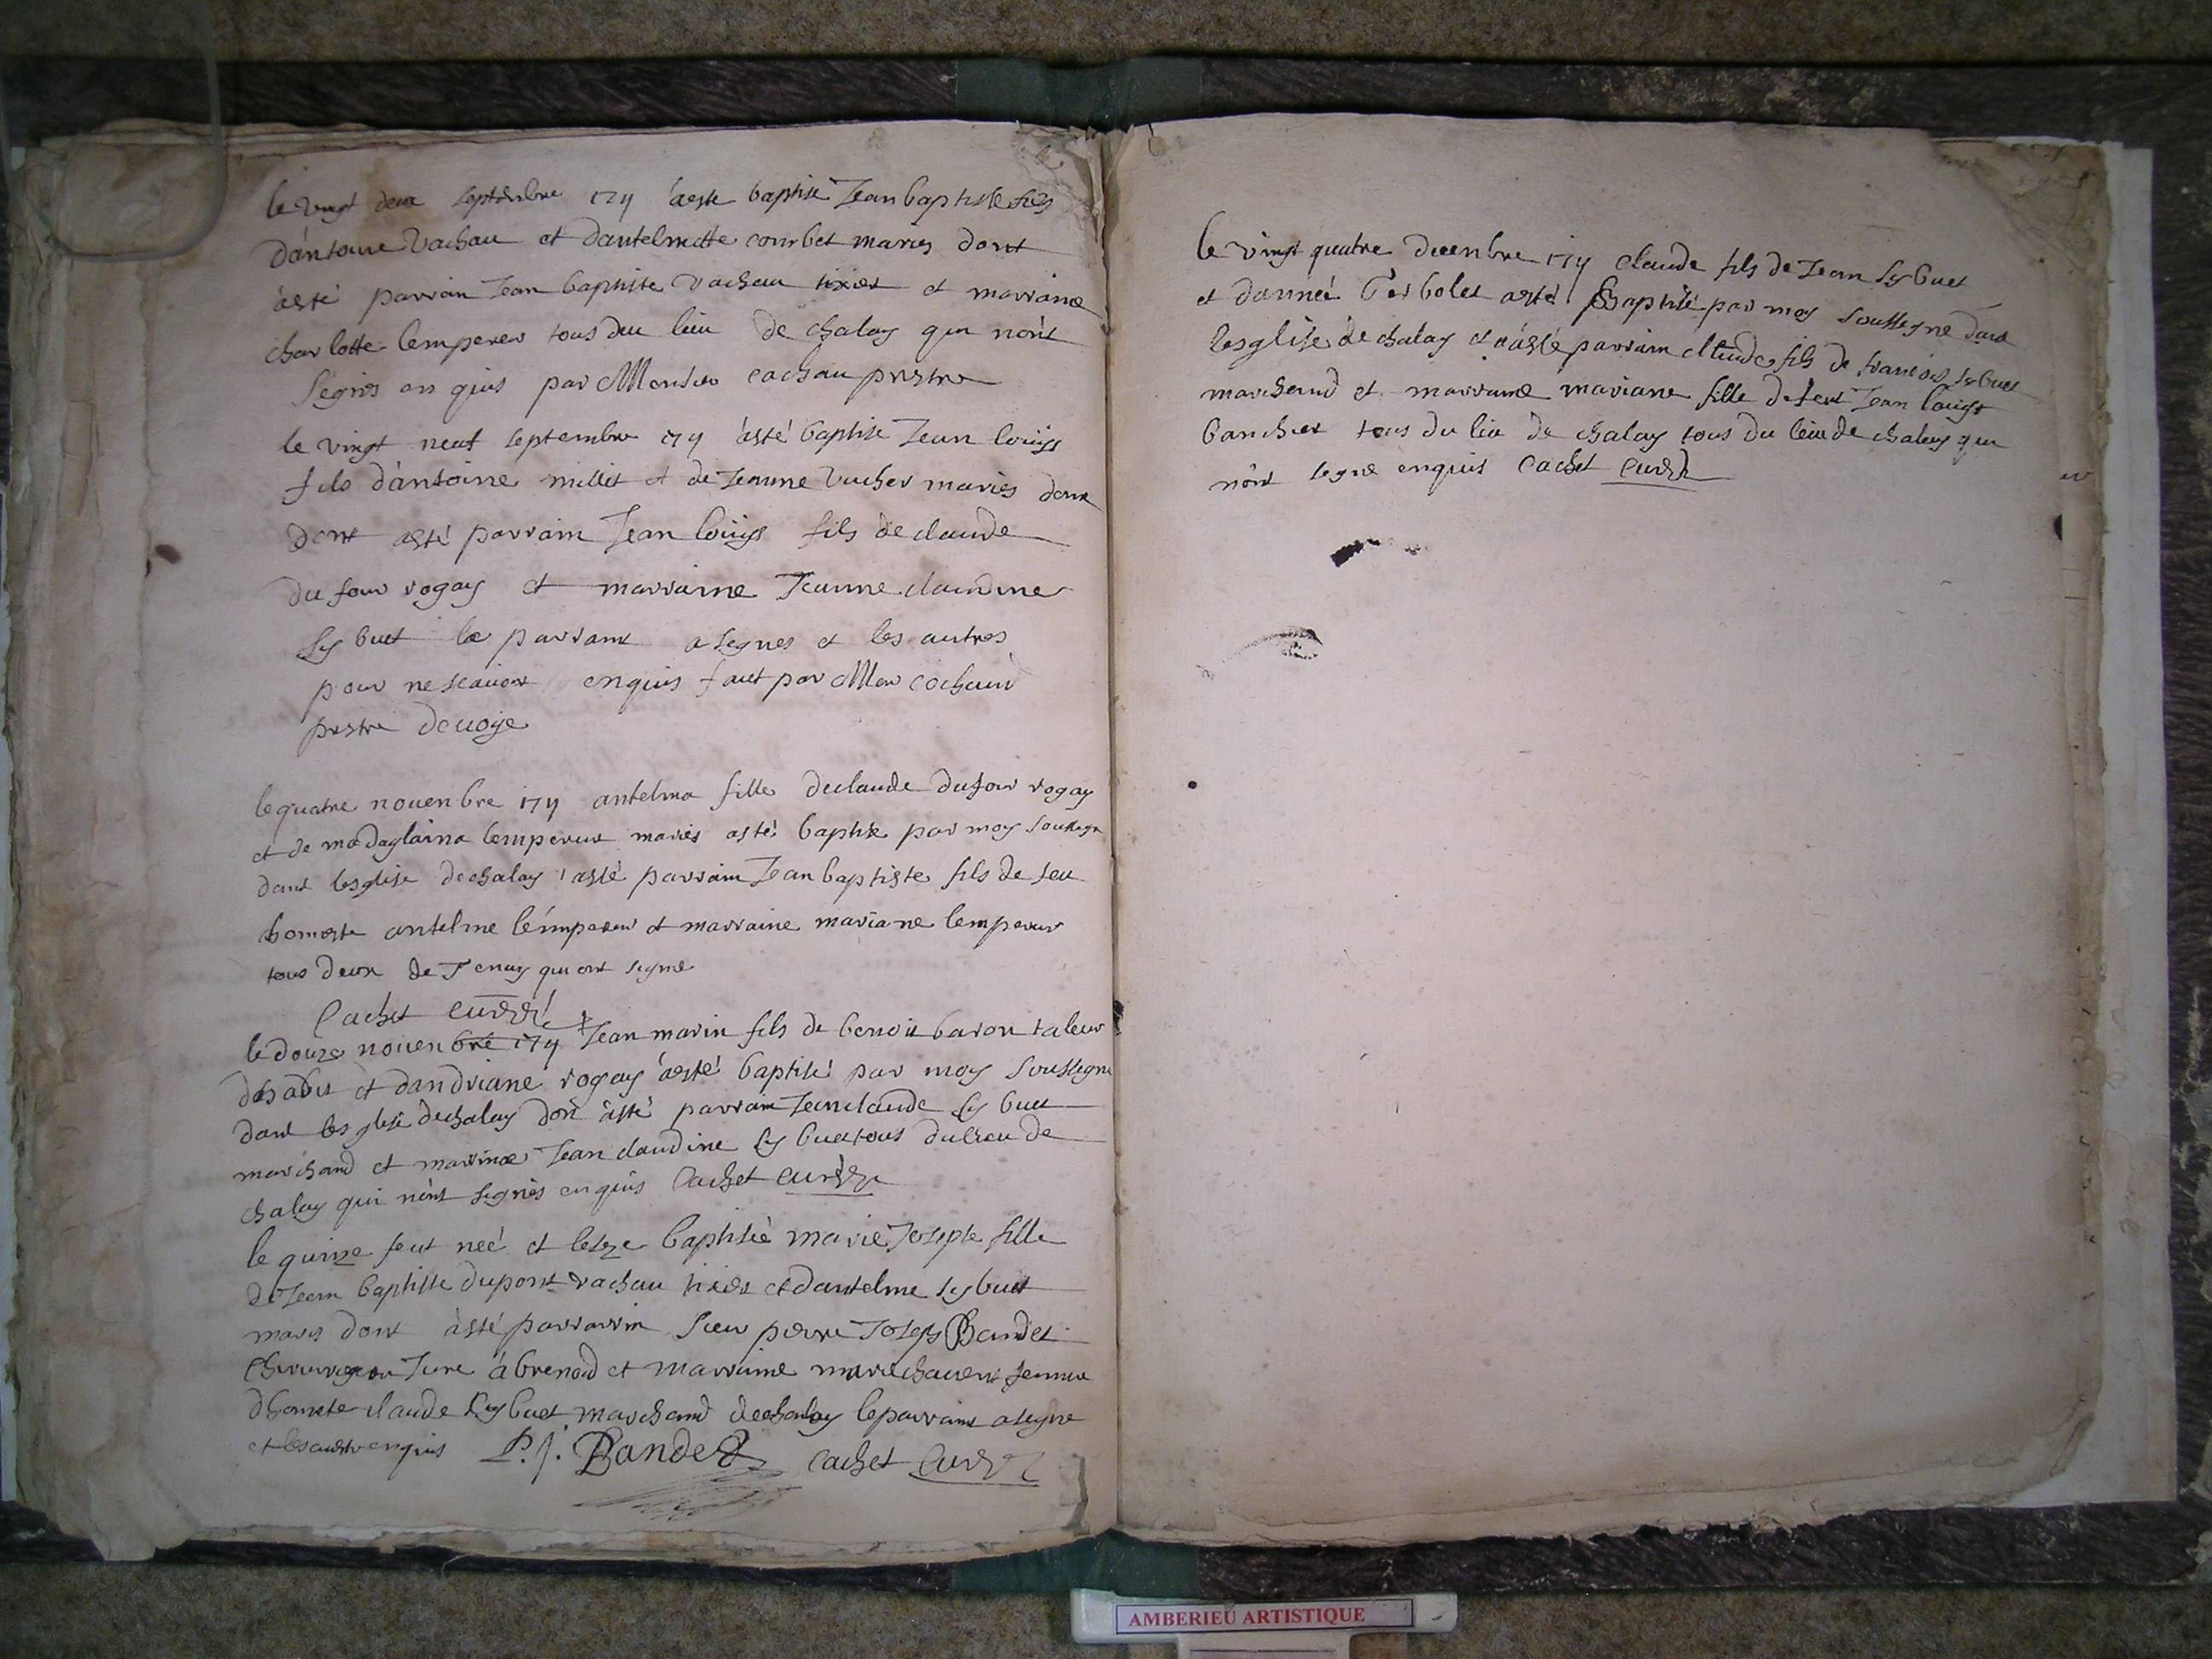 le vingt deux septenbre 1711 àeste baptise Jean baptiste fils
d'antoine Vachau et dantelmette courbet maries dont
àesté parrain Jean baptiste vachau tixier et marraine
charlotte lempereur tous du lieu de chalay qui nònt
signés en quis par Monsieur cochau prestre
le vingt neuf septembre 1711 àsté baptise Jean louis
fils d'antoine millet et de Jeanne Vucher mariés dont
dont asté parrain Jean louis fils de claude
du four rogay et marraine Jeanne claudine
sybuet le parrain a signes et les autres
pour ne scauoir enquis fait par Mon cochaud
prestre
le quatre nouenbre 1711 antelma fille declaude dufour rogay
et de madaglaina lempereur mariés asté baptisé par moy soussigne
dans lesglise dechalay asté parrain Jean baptiste fils de feu
homeste antelme lémpereur et marraine mariane lempereur
tous deux de Tenay qui ont signe
Cachet curé
le douze nouenbre 1711 Jean marin fils de benoit baron taleur
dabis et dandriane rogay àesté baptisé par moy soussigne
dans lesglise dechalay dont àsté parrain Jeanclaude sybuet
marchand et marrinae Jean claudine sybuet tous dulieu de
chalay qui nònt signés enquis Cachet curé
le quinze feut neé et leseze baptiseé marie Joseple fille
de Jean baptiste dupont vachau tixier et dantelme sybuet
maries dont àsté parrain sieur pierre Joseph Bandet
Chirurgeon Jure à brenod et marraine marie femme
dhoneste claude sybuet marchand dechalay leparraint asigne
et lesautre enquis P. J. Bandet Cachet Curé
le vingt quatre deeenbre 1711 claude fils de Jean sybuet
et danneé asté Baptisé par moy soussegne dans
lesglise de chalay et àasté parrain claude fils de francois sybuet
marchand et marraine mariane fille defeu Jean louis
banchet tous du lieu de chalay tous du lieu de chalay qui
nònt segne enquis Cachet Curé
AMBERIEU ARTISTIQUE